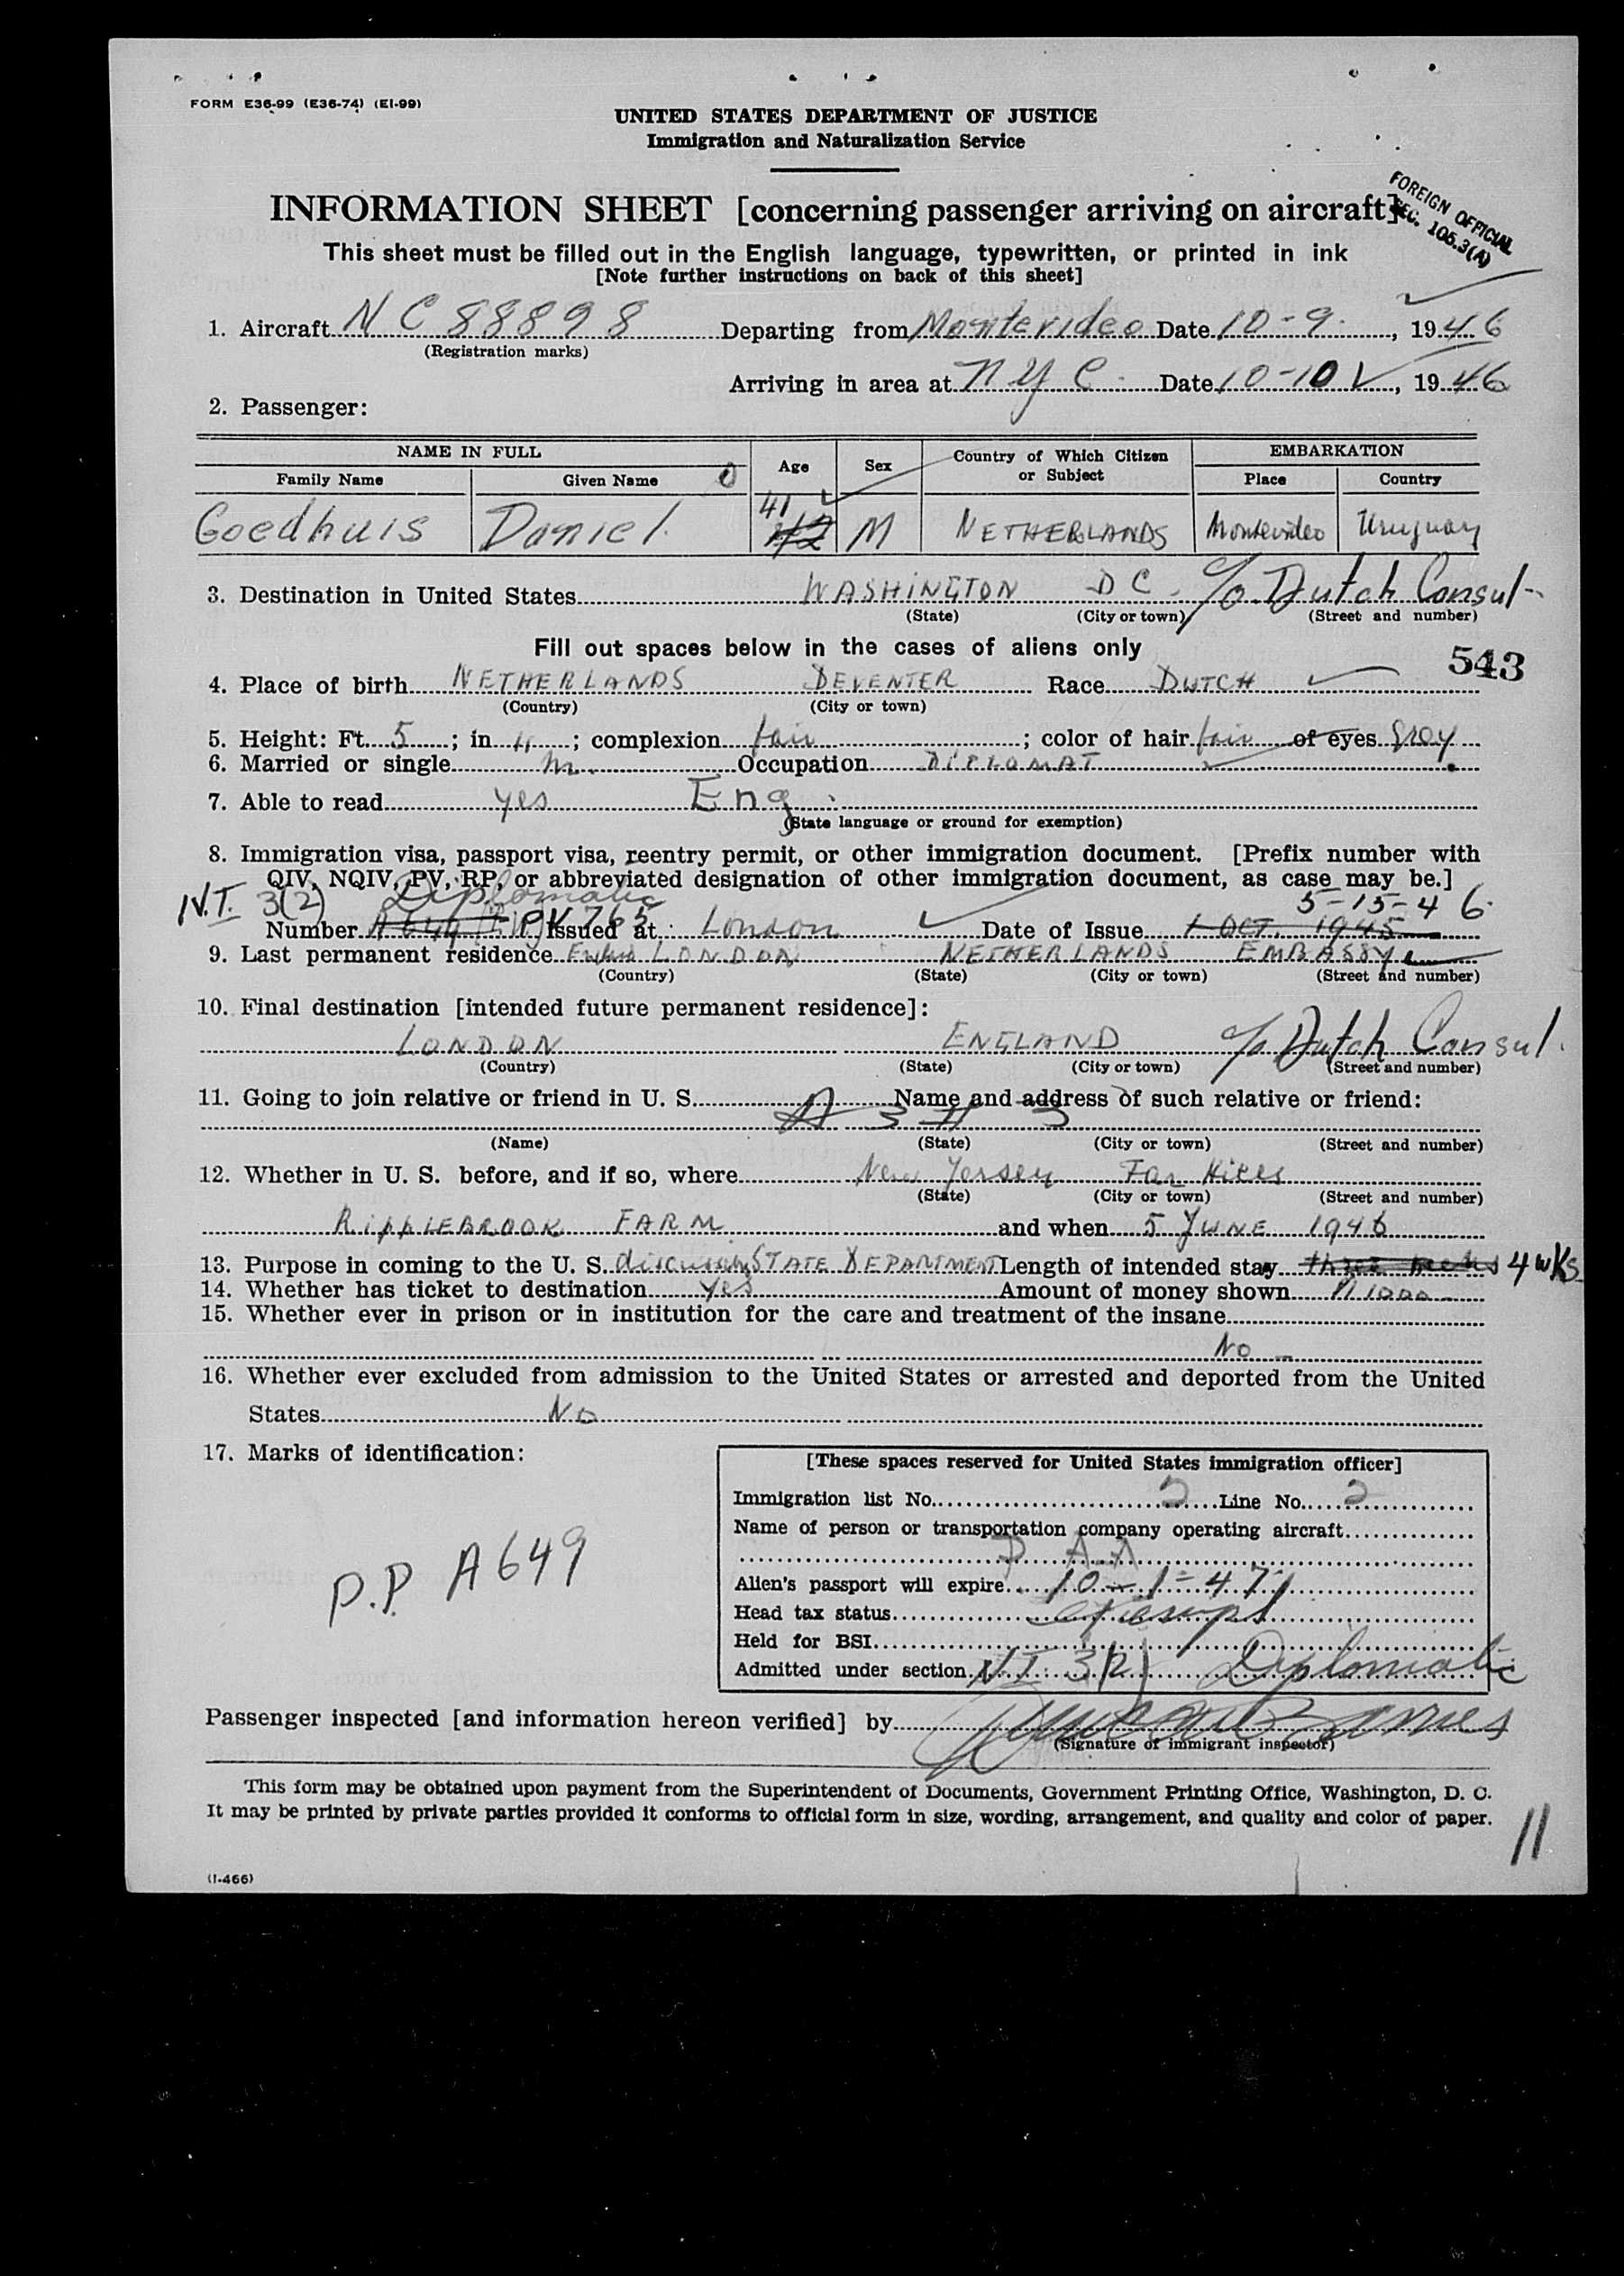 FORM E36-99 (E36-74) (EI-99)
UNITED STATES DEPARTMENT OF JUSTICE
Immigration and Naturalization Service
INFORMATION SHEET [concerning passenger arriving on aircraft]
FOREIGN OFFICIAL
SEC. 105.3(A)
This sheet must be filled out in the English language, typewritten, or printed in ink
[Note further instructions on back of this sheet]
1. Aircraft NC 88898 Departing from Montevideo Date 10-9-, 1946
(Registration marks)
Arriving in area at NYC. Date 10-10, 1946
2. Passenger:
NAME IN FULL Age Sex Country of Which Citizen or Subject EMBARKATION
Family Name Given Name Place Country
Goedhuis Daniel 41 42 M NETHERLANDS Montevideo Uruguay
3. Destination in United States WASHINGTON DC. c/o Dutch Consul
(State) (City or town) (Street and number)
Fill out spaces below in the cases of aliens only
543
4. Place of birth NETHERLANDS DEVENTER Race DUTCH
(Country) (City or town)
5. Height: Ft. 5; in 11; complexion fair; color of hair fair of eyes grey
6. Married or single m. Occupation DIPLOMAT
7. Able to read yes Eng.
(State language or ground for exemption)
8. Immigration visa, passport visa, reentry permit, or other immigration document. [Prefix number with
QIV, NQIV, PV, RP, or abbreviated designation of other immigration document, as case may be.]
N.T. 3(2) Diplomatic 5-15-46
Number A 649 PV 765 Issued at London Date of Issue 1 OCT. 1945
9. Last permanent residence LONDON NETHERLANDS EMBASSY
(Country) (State) (City or town) (Street and number)
10. Final destination [intended future permanent residence]:
LONDON ENGLAND c/o Dutch Consul.
(Country) (State) (City or town) (Street and number)
11. Going to join relative or friend in U. S. Name and address of such relative or friend:
A 3 H 3
(Name) (State) (City or town) (Street and number)
12. Whether in U. S. before, and if so, where New Jersey Far Hills
(State) (City or town) (Street and number)
RIPPLEBROOK FARM and when 5 JUNE 1946
13. Purpose in coming to the U. S. STATE DEPARTMENT Length of intended stay three weeks 4 wks
14. Whether has ticket to destination yes Amount of money shown 1000
15. Whether ever in prison or in institution for the care and treatment of the insane
No
16. Whether ever excluded from admission to the United States or arrested and deported from the United
States No
17. Marks of identification:
P.P. A649
[These spaces reserved for United States immigration officer]
Immigration list No. 2 Line No. 2
Name of person or transportation company operating aircraft
P A A
Alien's passport will expire 10-1-47
Head tax status exempt
Held for BSI
Admitted under section N.T. 3(2) Diplomatic
Passenger inspected [and information hereon verified] by
(Signature of immigrant inspector)
This form may be obtained upon payment from the Superintendent of Documents, Government Printing Office, Washington, D. C.
It may be printed by private parties provided it conforms to official form in size, wording, arrangement, and quality and color of paper.
11
(I-466)